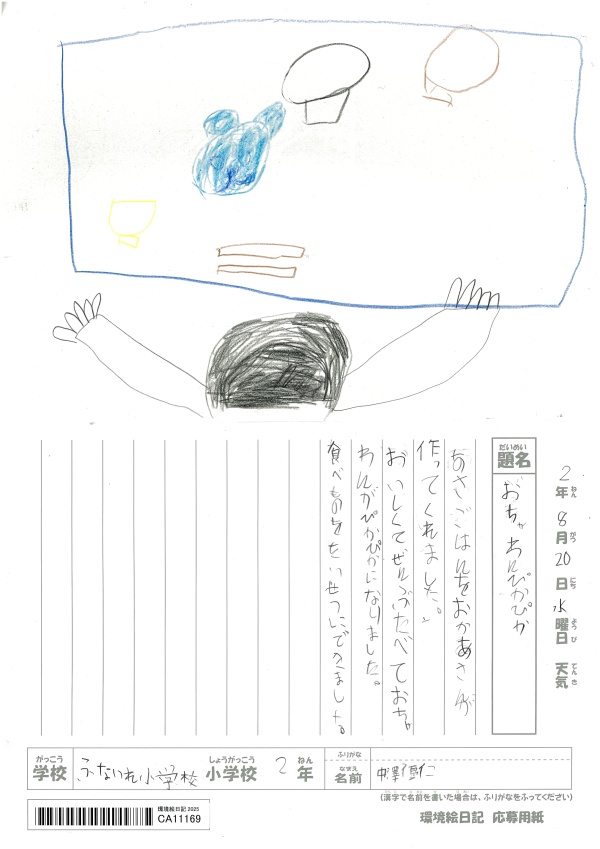 2年ねん8月がつ20日にち水曜日ようび天気てんき
題名だいめい
おちゃわんぴかぴか
あさごはんをおかあさんが
作ってくれました。
おいしくてぜんぶたべておちゃ
わんがぴかぴかになりました。
食べものをたいせつにできました。
がっこう 学校 ふないれ小学校 しょうがっこう 小学校 2 ねん 年
ふりがな
なまえ 名前 中澤
(漢字で名前を書いた場合は、ふりがなをふってください)
環境絵日記 2025
CA11169
環境絵日記 応募用紙